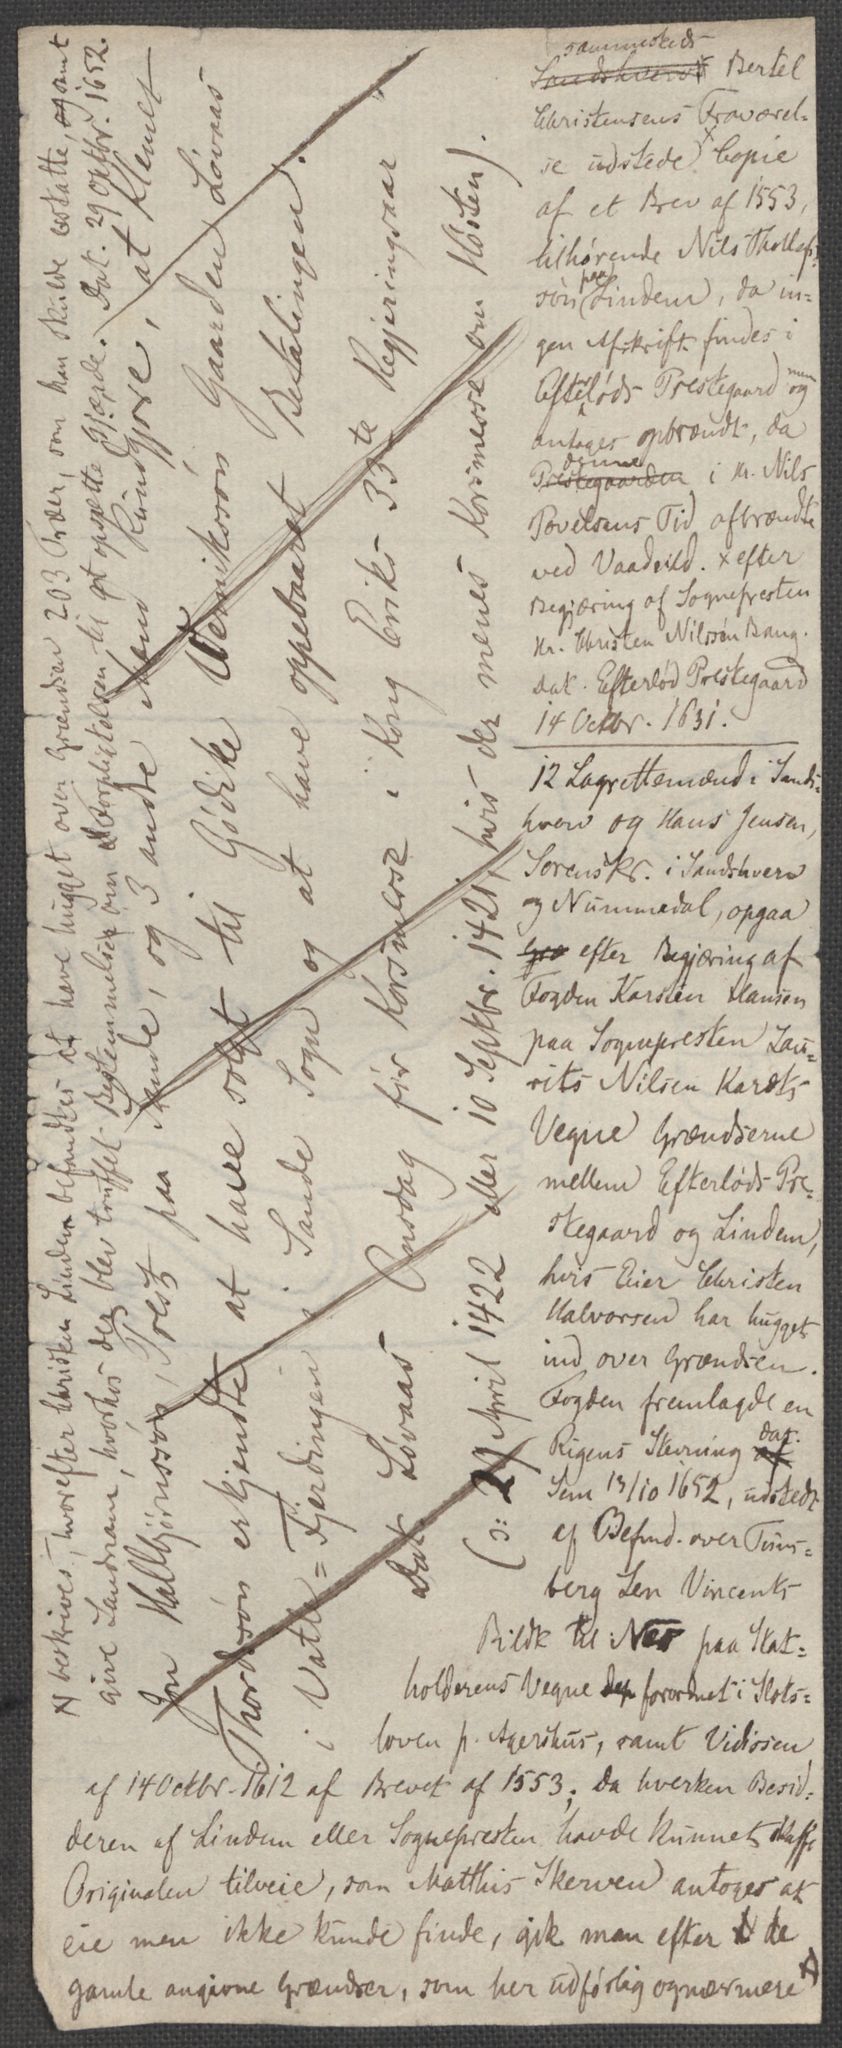 sammesteds
Sandshverv Bertel
Christensens Fraværel-
se udstede x Copie
af et Brev af 1553,
tilhørende Nils Thollefs-
søn paa Lindem, da in-
gen Afskrift findes i
Efteløds Prestegaard og
antages opbrændt, da
denne
Prestegaarden i Hr. Nils
Povelsens Tid afbrændte
ved Vaadeild. x efter
Begjæring af Sognepresten
Hr. Christen Nilssøn Bang.
Dat. Efterlød Prestegaard
14 Octbr. 1631.
12 Lagrettemænd i Sands-
hverv og Hans Jensen,
Sorenskr. i Sandshverv
og Nummedal, opgaa
efter Begjæring af
Fogden Karsten Hansen
paa Sognepresten Lau-
rits Nilsen Karøts
Vegne Grændserne
mellem Efterløds Pre-
stegaard og Lindem,
hvis Eier Christen
Halvorsen har hugget
ind over Grændsen.
Fogden fremlagde en
Rigens Stevning dat.
Sem 13/10 1652, udstedt
af Befmd. over Tuns-
berg Len Vincents
Bildt til Nes paa Stat-
holderens Vegne forordnet i Slots-
loven p. Agershus, samt Vidissen
af 14 Octbr. 1612 af Brevet af 1553; da hverken Besid-
deren af Lindem eller Sognepresten havde kunnet skaffe
Originalen tilveie, som Matthis Skerven antoges at
eie men ikke kunde finde, gik man efter de
gamle angivne Grændser, som her udførlig og nærmere #
# beskrives, hvorefter Christen Lindem befandtes at have hugget over Grændsen 203 Træer, som han skulde erstatte, og samt
give Landnam, hvorhos der blev truffet Bestemmelser om Forpligtelsen til at opsætte Gjærde. Dat. 29 Oktbr. 1652.
Jon Hallbjørnssøn, Prest paa Sande, og 3 andre Mænd kundgjøre, at Klemet
Thordssøn erkjendte at have solgt til Gødike Wernikssøn Gaarden Løvaas
i Vatn=Fjerdingen i Sande Sogn og at have oppebaaret Betalingen.
Dat. Løvaas Onsdag før Korsmesse i Kong Eriks 33te Regjeringsaar
(ɔ: 29 April 1422 eller 10 Septbr. 1421, hvis der menes Korsmesse om Høsten).